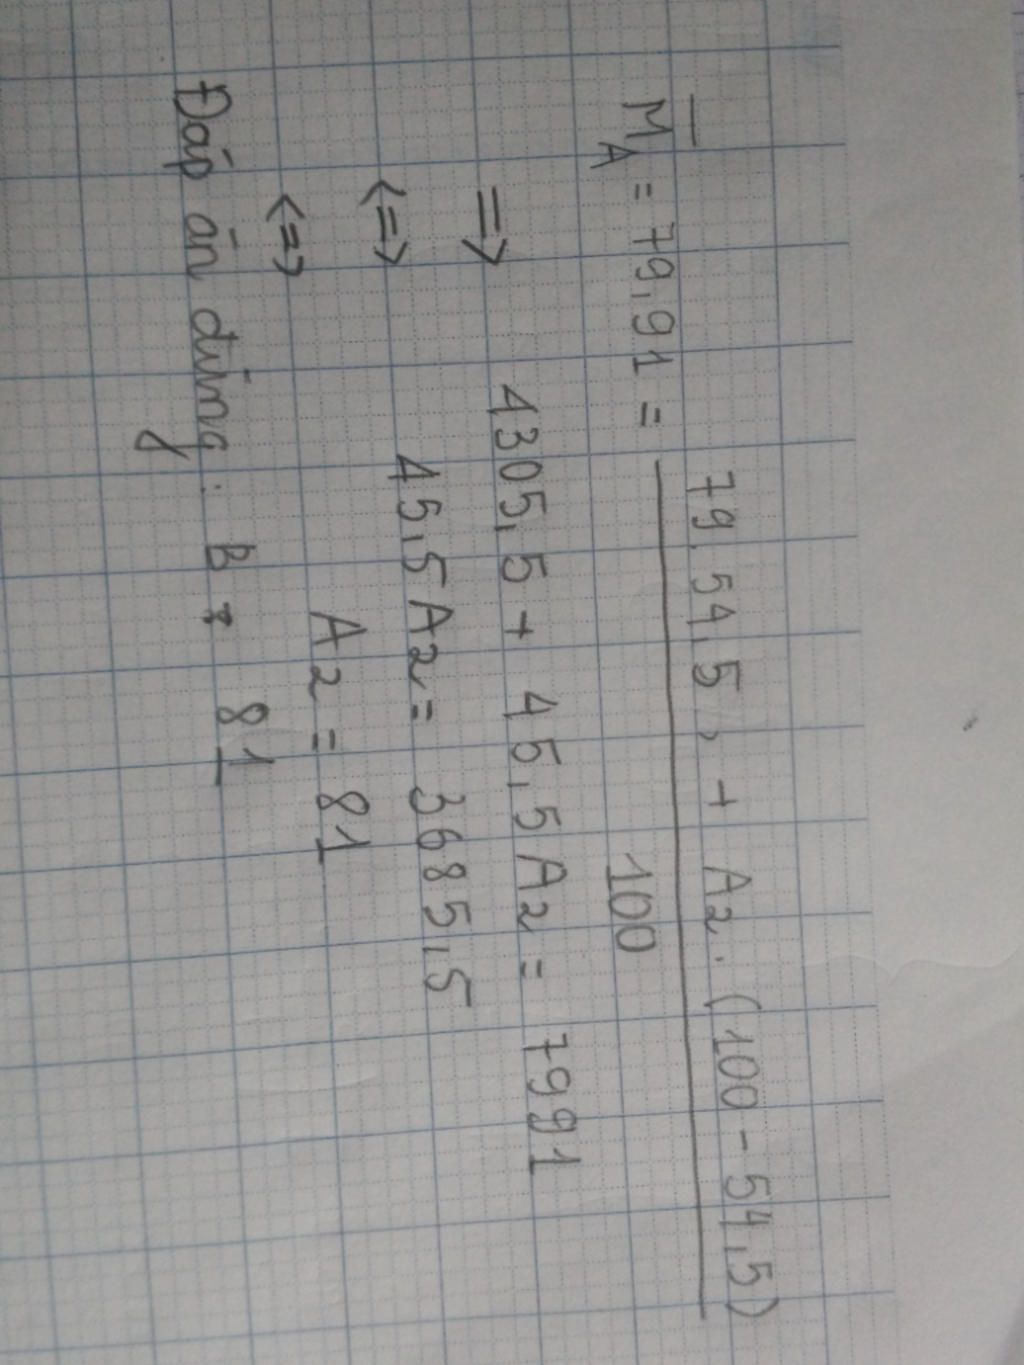 M̅_A = 79,91 = 79.54,5 + A2.(100-54,5)
100
=> 4305,5 + 45,5A2 = 7991
<=> 45,5A2 = 3685,5
<=> A2 = 81
Đáp án đúng: B: 81